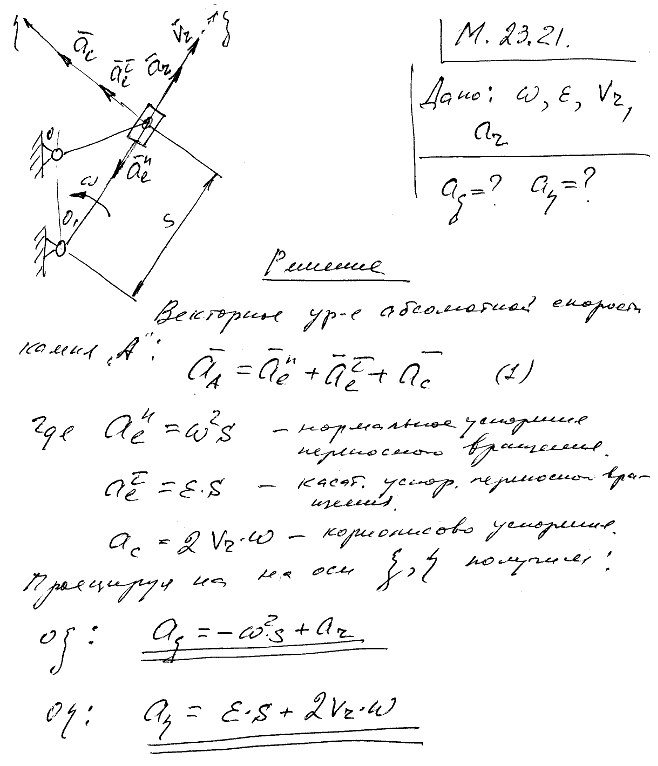 М. 23.21.
Дано: ω, ε, Vr,
ar
aξ = ? aη = ?
η āc āeτ ār V̄r ξ
āeⁿ
O
ω
O₁
S
Решение
Векторное ур-е абсолютной скорости
камня „А":
āA = āeⁿ + āeτ + āc (1)
где aeⁿ = ω²s – нормальное ускорение
переносного вращения.
aeτ = ε·s – касат. ускор. переносного вра-
щения.
ac = 2Vr·ω – кориолисово ускорение.
Проецируя на на оси ξ, η получим:
Oξ: aξ = -ω²·s + ar
Oη: aη = ε·s + 2Vr·ω